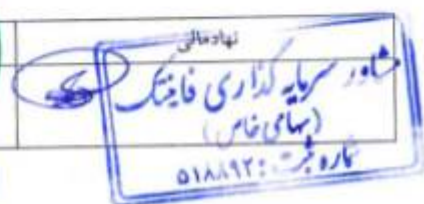 نهاد مالی
مشاور سرمایه گذاری فاینتک
(سهامی خاص)
شماره ثبت: ۵۱۸۸۹۲